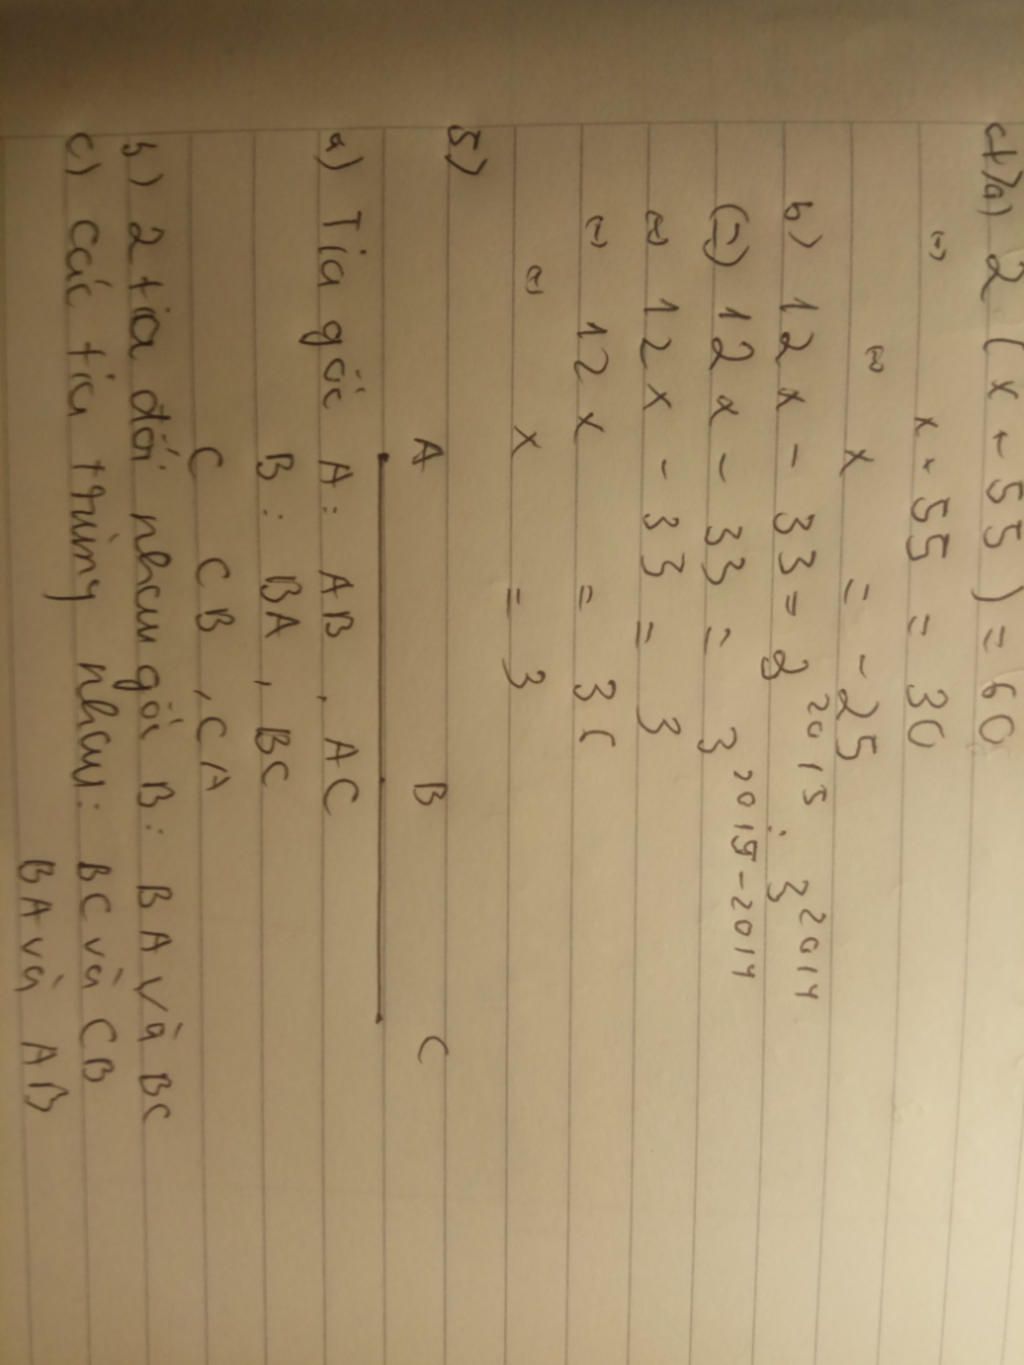 c4) a) 2 (x + 55) = 60
(=) x + 55 = 30
(=) x = -25
b) 12x - 33 = 3²⁰¹⁵ : 3²⁰¹⁴
(=) 12x - 33 = 3²⁰¹⁵⁻²⁰¹⁴
(=) 12x - 33 = 3
(=) 12x = 36
(=) x = 3
5)
A B C
a) Tia gốc A: AB, AC
B: BA, BC
C CB, CA
b) 2 tia đối nhau gốc B: BA và BC
c) các tia trùng nhau: BC và CB
BA và AB